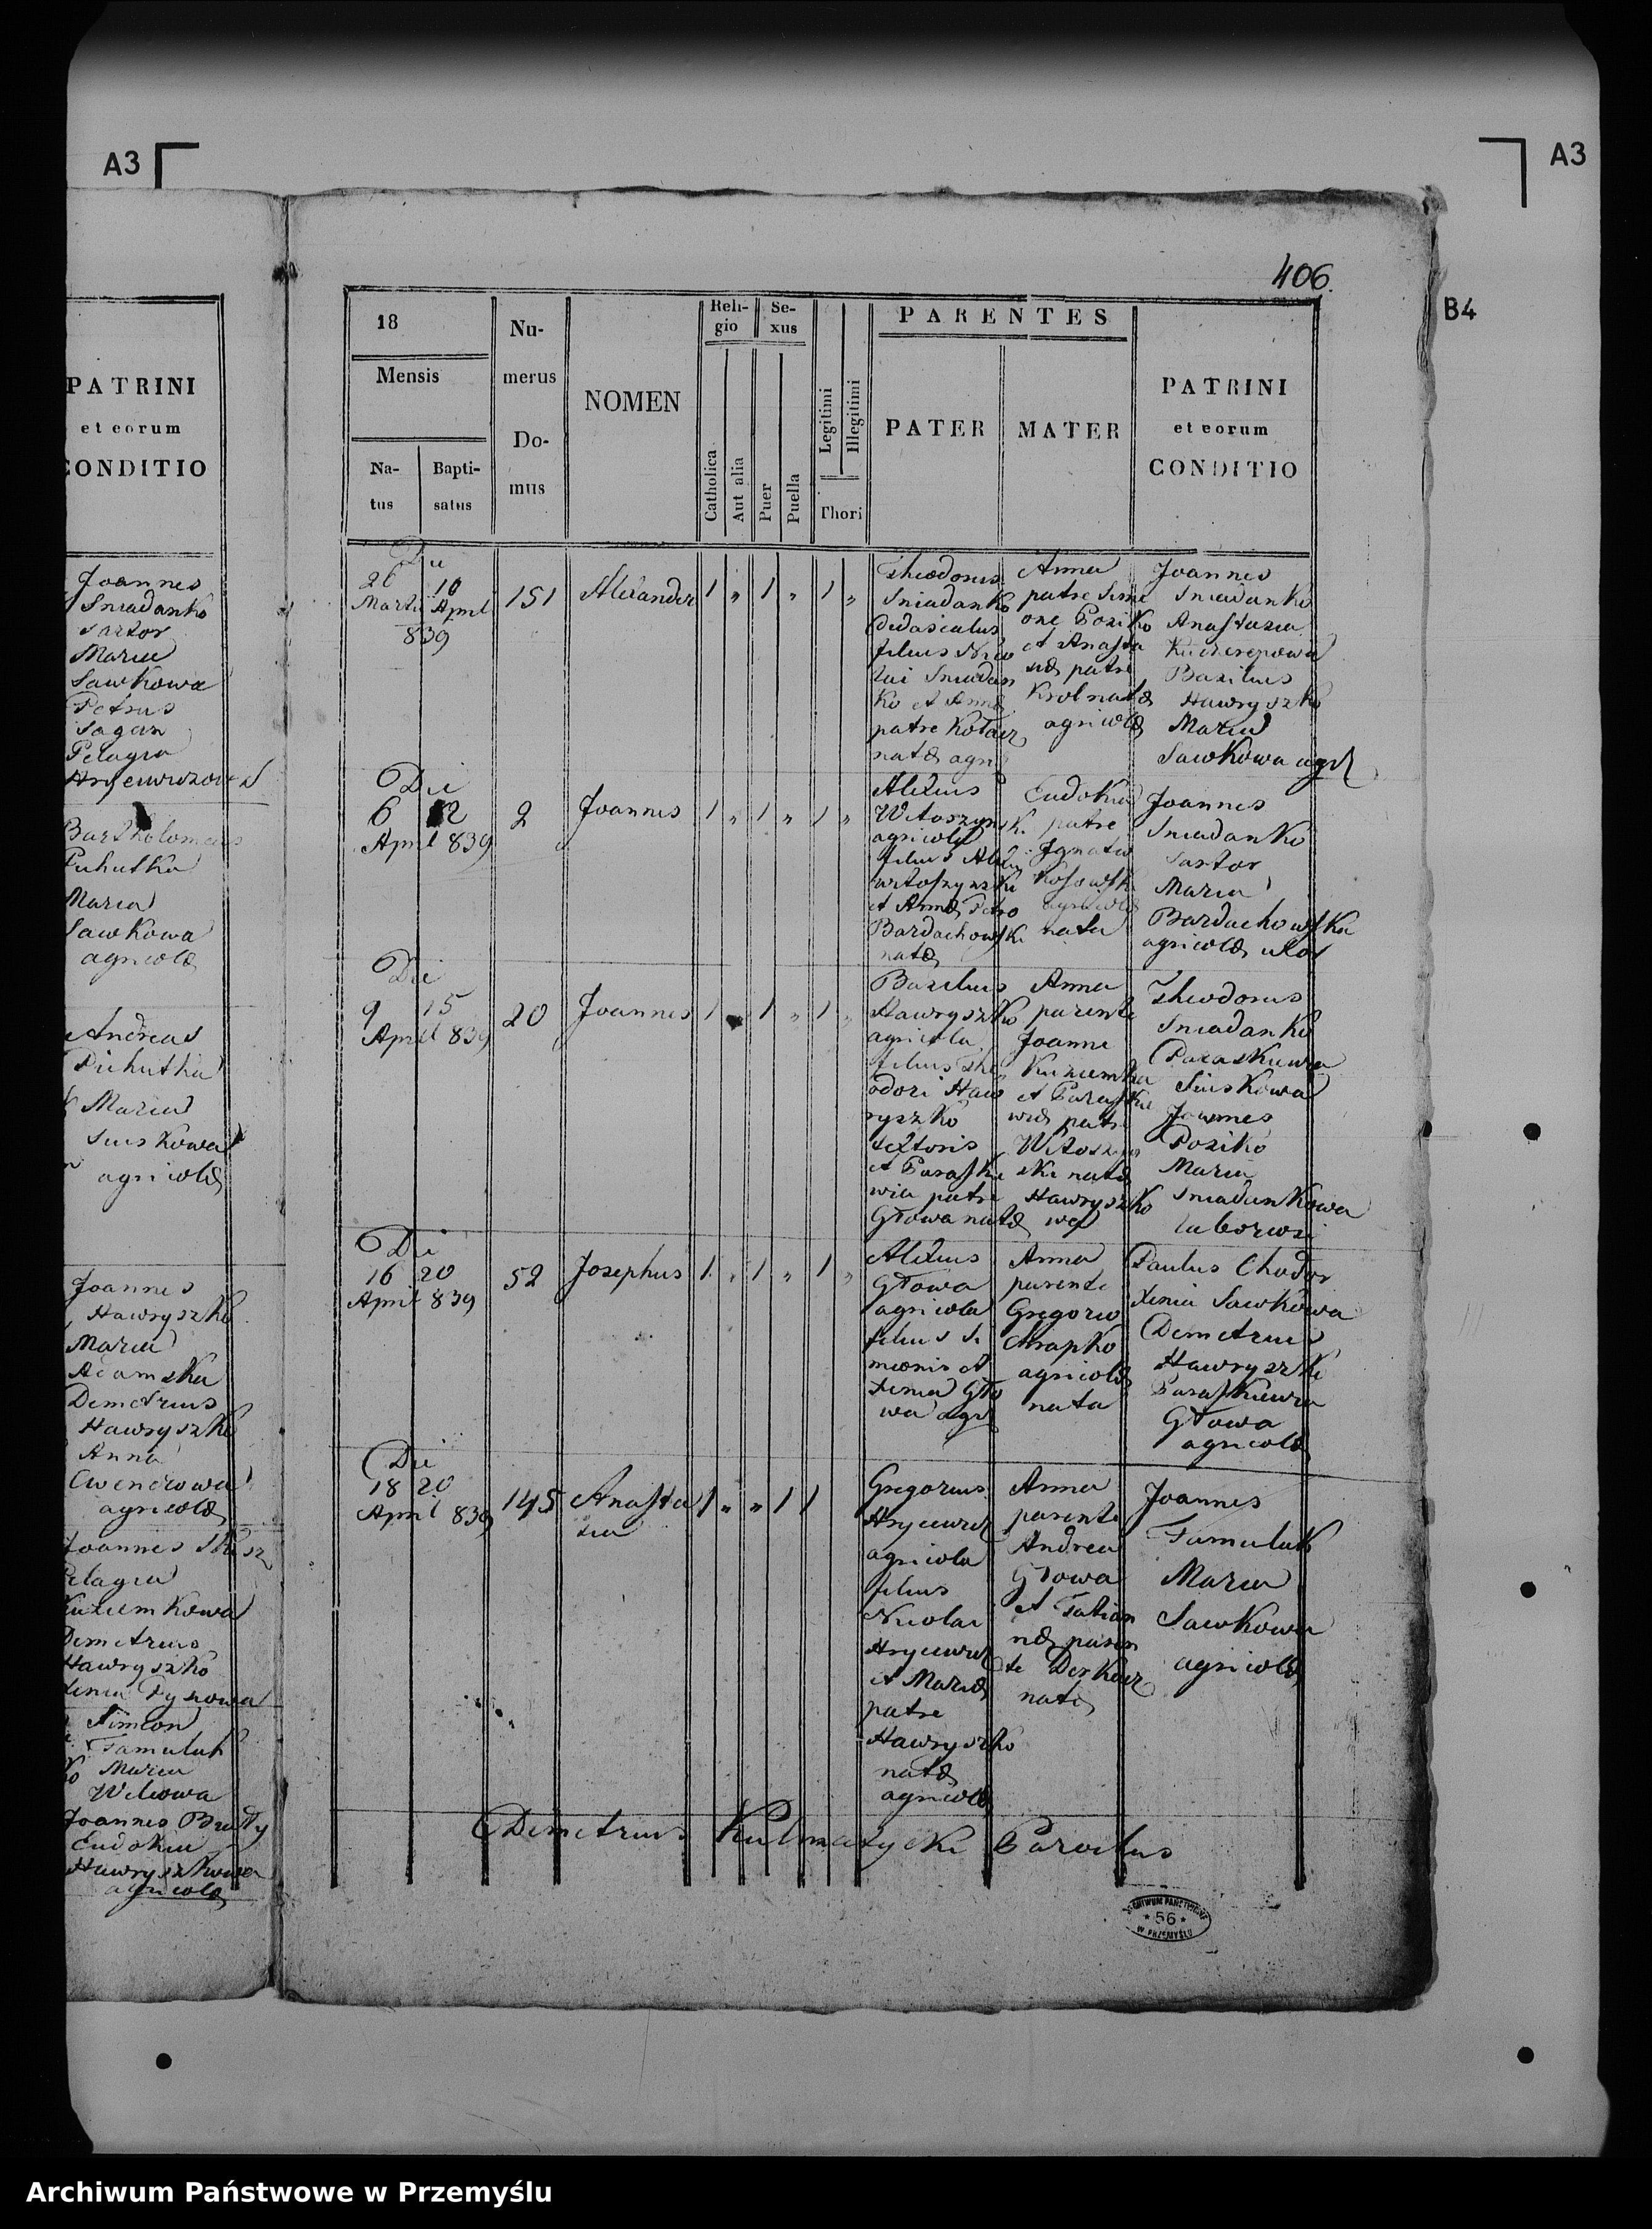 A3
A3
B4
406.
PATRINI
et eorum
CONDITIO
Joannes
Sniadanko
sartor
Maria
Sawkowa
Petrus
Sagan
Pelagia
Bartholomeus
Maria
Sawkowa
agricolæ
Andreas
Pichutka
Maria
Suskowa
agricolæ
Joannes
Hawryszko
Maria
Adamska
Demetrius
Hawryszko
Anna
agricolæ
Joannes
Pelagia
Kuziemkowa
Demetrius
Hawryszko
Simeon
Tamulak
Maria
Wilkowa
Joannes
Eudokia
Hawryszkowa
agricolæ
18
Mensis
Na-
tus
Bapti-
satus
Nu-
merus
Do-
mus
NOMEN
Reli-
gio
Catholica
Aut alia
Se-
xus
Puer
Puella
Legitimi
Illegitimi
Thori
PARENTES
PATER
MATER
PATRINI
et eorum
CONDITIO
Die
26 10
Martii April
839
151
Alexander
1 „ 1 „ 1 „
Theodorus
Sniadanko
didasculus
filius Nico
lai Sniadan
ko et Annæ
patre Kołacz
natæ agri
Anna
patre Sime
one Poziko
et Anasta
siæ patre
Krol natæ
agricolæ
Joannes
Sniadanko
Anastazia
Basilius
Hawryszko
Maria
Sawkowa agr
Die
6 12
April 839
2
Joannes
1 „ 1 „ 1 „
Alexius
Witoszynski
agricola
filius Alexi
witoszynski
et Annæ Petro
Bardachowski
natæ
Eudokia
patre
Ignatio
Kosowski
agricolæ
nata
Joannes
Sniadanko
Sartor
Maria
Bardachowska
agricolæ
Die
9 15
April 839
20
Joannes
1 „ 1 „ 1 „
Basilius
Hawryszko
agricola
filius The
odori Haw
ryszko
textoris
et Paraske
wia patre
Głowa natæ
Anna
parente
Joanne
Kuziemka
et Paraske
wiæ patre
Witoszyn
ski natæ
Hawryszko
wa
Theodorus
Sniadanko
Paraskewia
Suskowa
Joannes
Poziko
Maria
Sniadankowa
Die
16 20
April 839
52
Josephus
1 „ 1 „ 1 „
Alexius
Głowa
agricola
filius Si
meonis et
Xenia Gło
wa agr
Anna
parente
Gregorio
Chrapko
agricolæ
nata
Paulus Chodor
Xenia Sawkowa
Demetrius
Hawryszko
Paraskewia
Głowa
agricolæ
Die
18 20
April 839
145
Anasta
sia
1 „ „ 1 1
Gregorius
Hrycewicz
agricola
filius
Nicolai
Hrycewicz
et Mariæ
patre
Hawryszko
natæ
agricolæ
Anna
parente
Andrea
Głowa
et Tatian
næ paren
te Derkacz
natæ
Joannes
Tamulak
Maria
Sawkowa
agricolæ
Demetrius Kulmatycki Parochus
ARCHIWUM PAŃSTWOWE
* 56 *
W PRZEMYŚLU
Archiwum Państwowe w Przemyślu